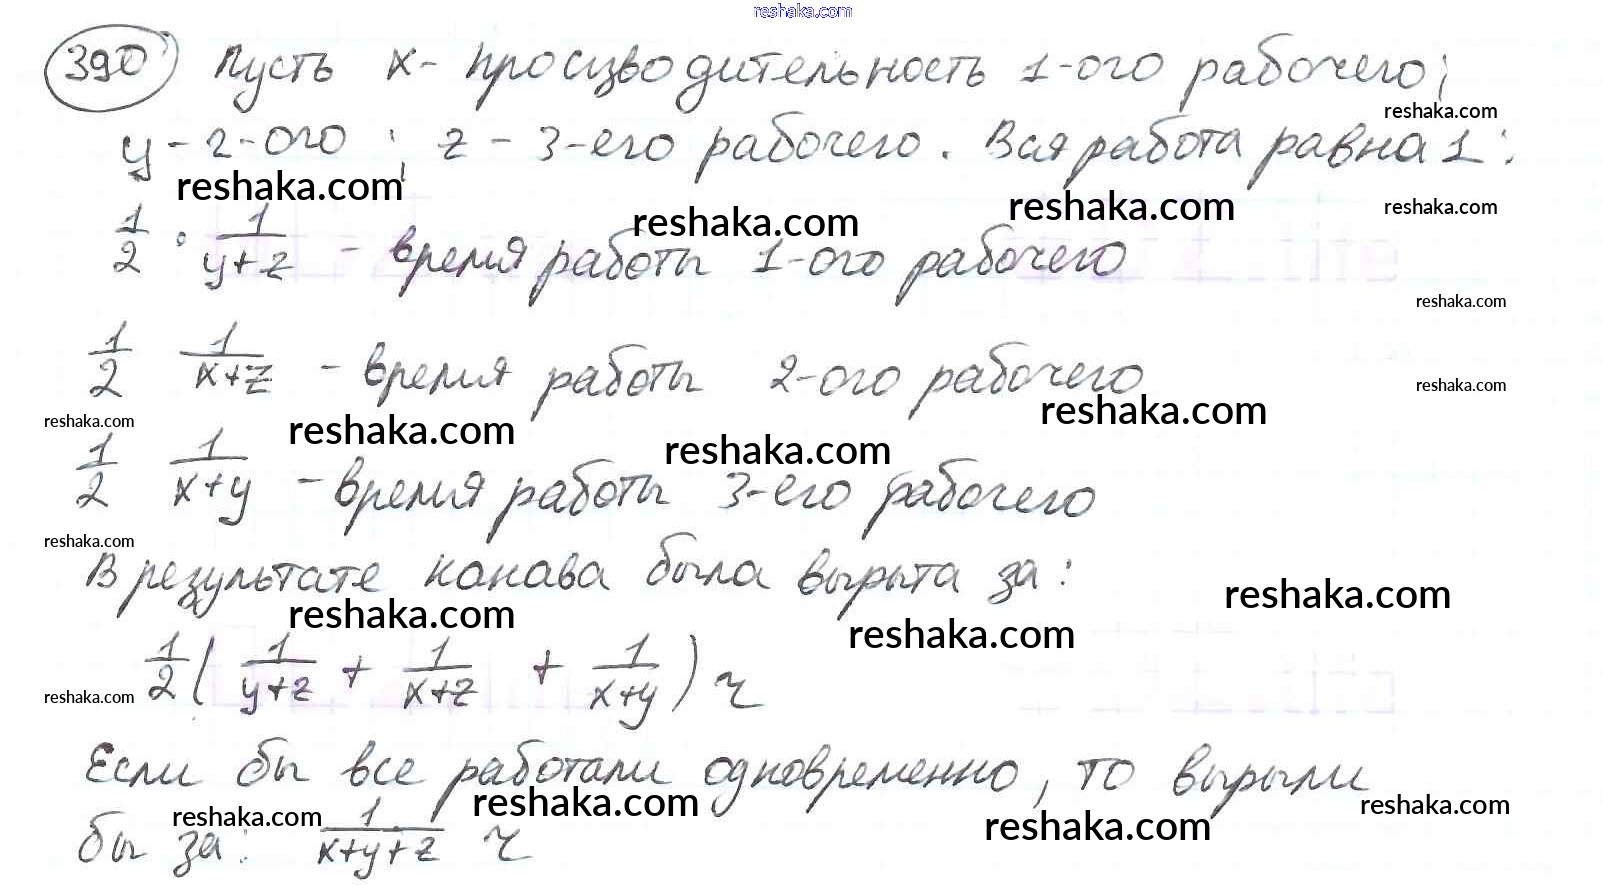 reshaka.com
390 Пусть x - производительность 1-ого рабочего;
reshaka.com
y - 2-ого ; z - 3-его рабочего. Вся работа равна 1:
reshaka.com
reshaka.com
reshaka.com
reshaka.com
1/2 · 1/(y+z) - время работы 1-ого рабочего
reshaka.com
1/2 1/(x+z) - время работы 2-ого рабочего
reshaka.com
reshaka.com
reshaka.com
reshaka.com
reshaka.com
1/2 1/(x+y) - время работы 3-его рабочего
reshaka.com
В результате канава была вырыта за:
reshaka.com
reshaka.com
reshaka.com
1/2 ( 1/(y+z) + 1/(x+z) + 1/(x+y) ) ч
reshaka.com
Если бы все работали одновременно, то вырыли
reshaka.com
reshaka.com
reshaka.com
reshaka.com
бы за: 1/(x+y+z) ч